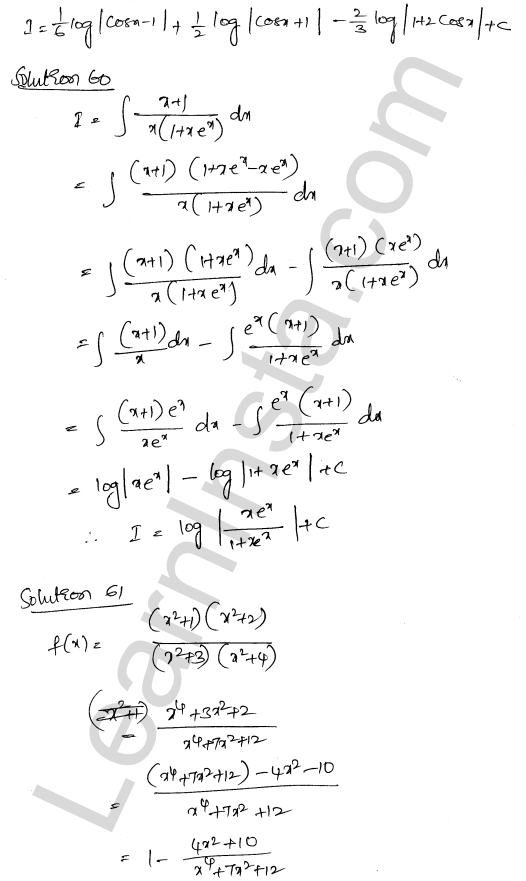 I = 1/6 log|cosx-1| + 1/2 log|cosx+1| - 2/3 log|1+2cosx| + C
Solution 60
I = ∫ (x+1)/(x(1+xe^x)) dx
= ∫ ((x+1)(1+xe^x-xe^x))/(x(1+xe^x)) dx
= ∫ ((x+1)(1+xe^x))/(x(1+xe^x)) dx - ∫ ((x+1)(xe^x))/(x(1+xe^x)) dx
= ∫ (x+1)/x dx - ∫ (e^x(x+1))/(1+xe^x) dx
= ∫ ((x+1)e^x)/(xe^x) dx - ∫ (e^x(x+1))/(1+xe^x) dx
= log|xe^x| - log|1+xe^x| + C
∴ I = log|xe^x/(1+xe^x)| + C
Solution 61
f(x) = ((x²+1)(x²+2))/((x²+3)(x²+4))
= (x⁴+3x²+2)/(x⁴+7x²+12)
= ((x⁴+7x²+12)-4x²-10)/(x⁴+7x²+12)
= 1 - (4x²+10)/(x⁴+7x²+12)
LearnInsta.com